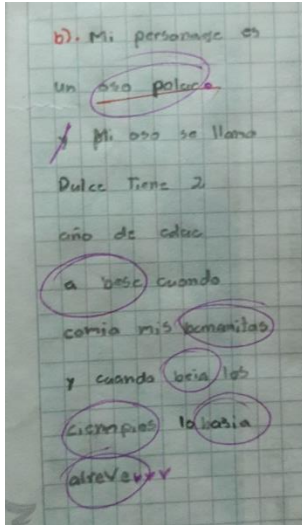 b). Mi personage es
un oso polar
y Mi oso se llama
Dulce Tiene 2
año de edac
a bese cuando
comia mis bomanitas
y cuando beia los
ciempies la hasia
alreves